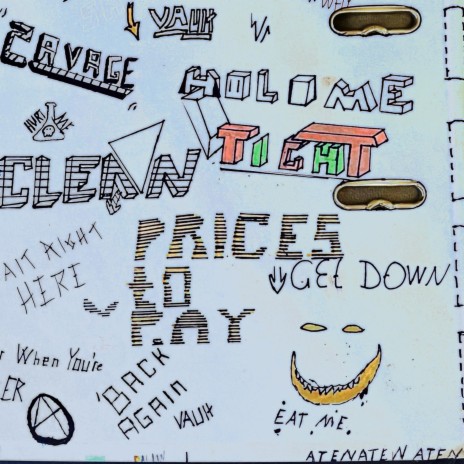 VAUH
CAVAGE
HOLD ME
TIGHT
HURT ME
CLEAN
PRICES
to
PAY
WAIT RIGHT
HERE
GET DOWN
When You're
BACK
AGAIN
VAUH
EAT ME
ATENATENATEN